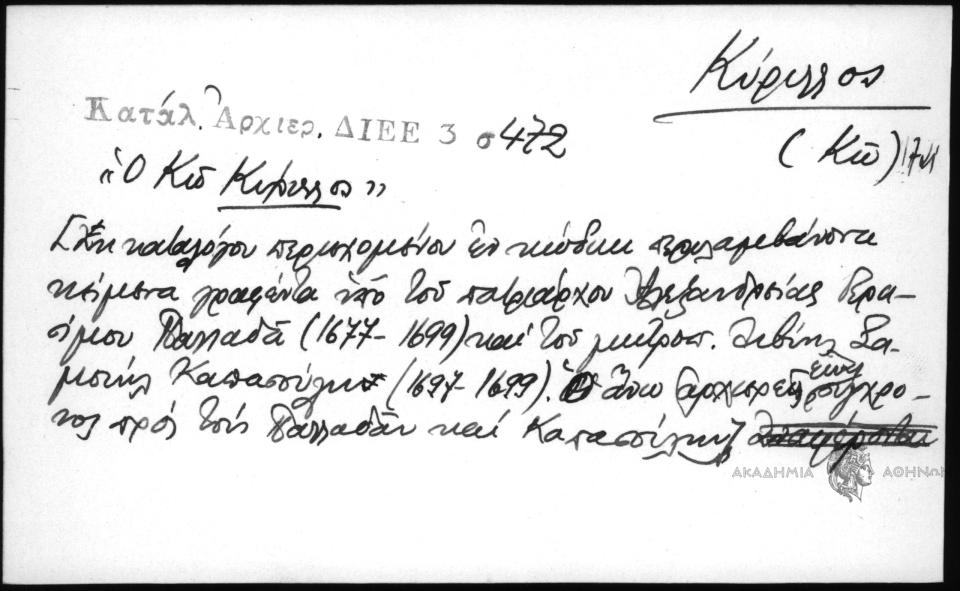 Κύριλλος
Κατάλ. Ἀρχιερ. ΔΙΕΕ 3 σ 472
(Κῶ)
"Ὁ Κῶ Κύριλλος"
[Ἐκ καταλόγου περιεχομένου ἐν κώδικι περιλαμβάνοντα
κείμενα γραφέντα ὑπό τοῦ πατριάρχου Ἀλεξανδρείας Γερα-
σίμου Παλλαδᾶ (1677-1699) καί τοῦ μητροπ. Λιβύης Σα-
μουήλ Καπασούλη (1697-1699). Ὁ ἄνω ἀρχιερεύς εἶναι σύγχρο-
νος πρός τόν Παλλαδᾶν καί Καπασούλην]
ΑΚΑΔΗΜΙΑ ΑΘΗΝΩΝ